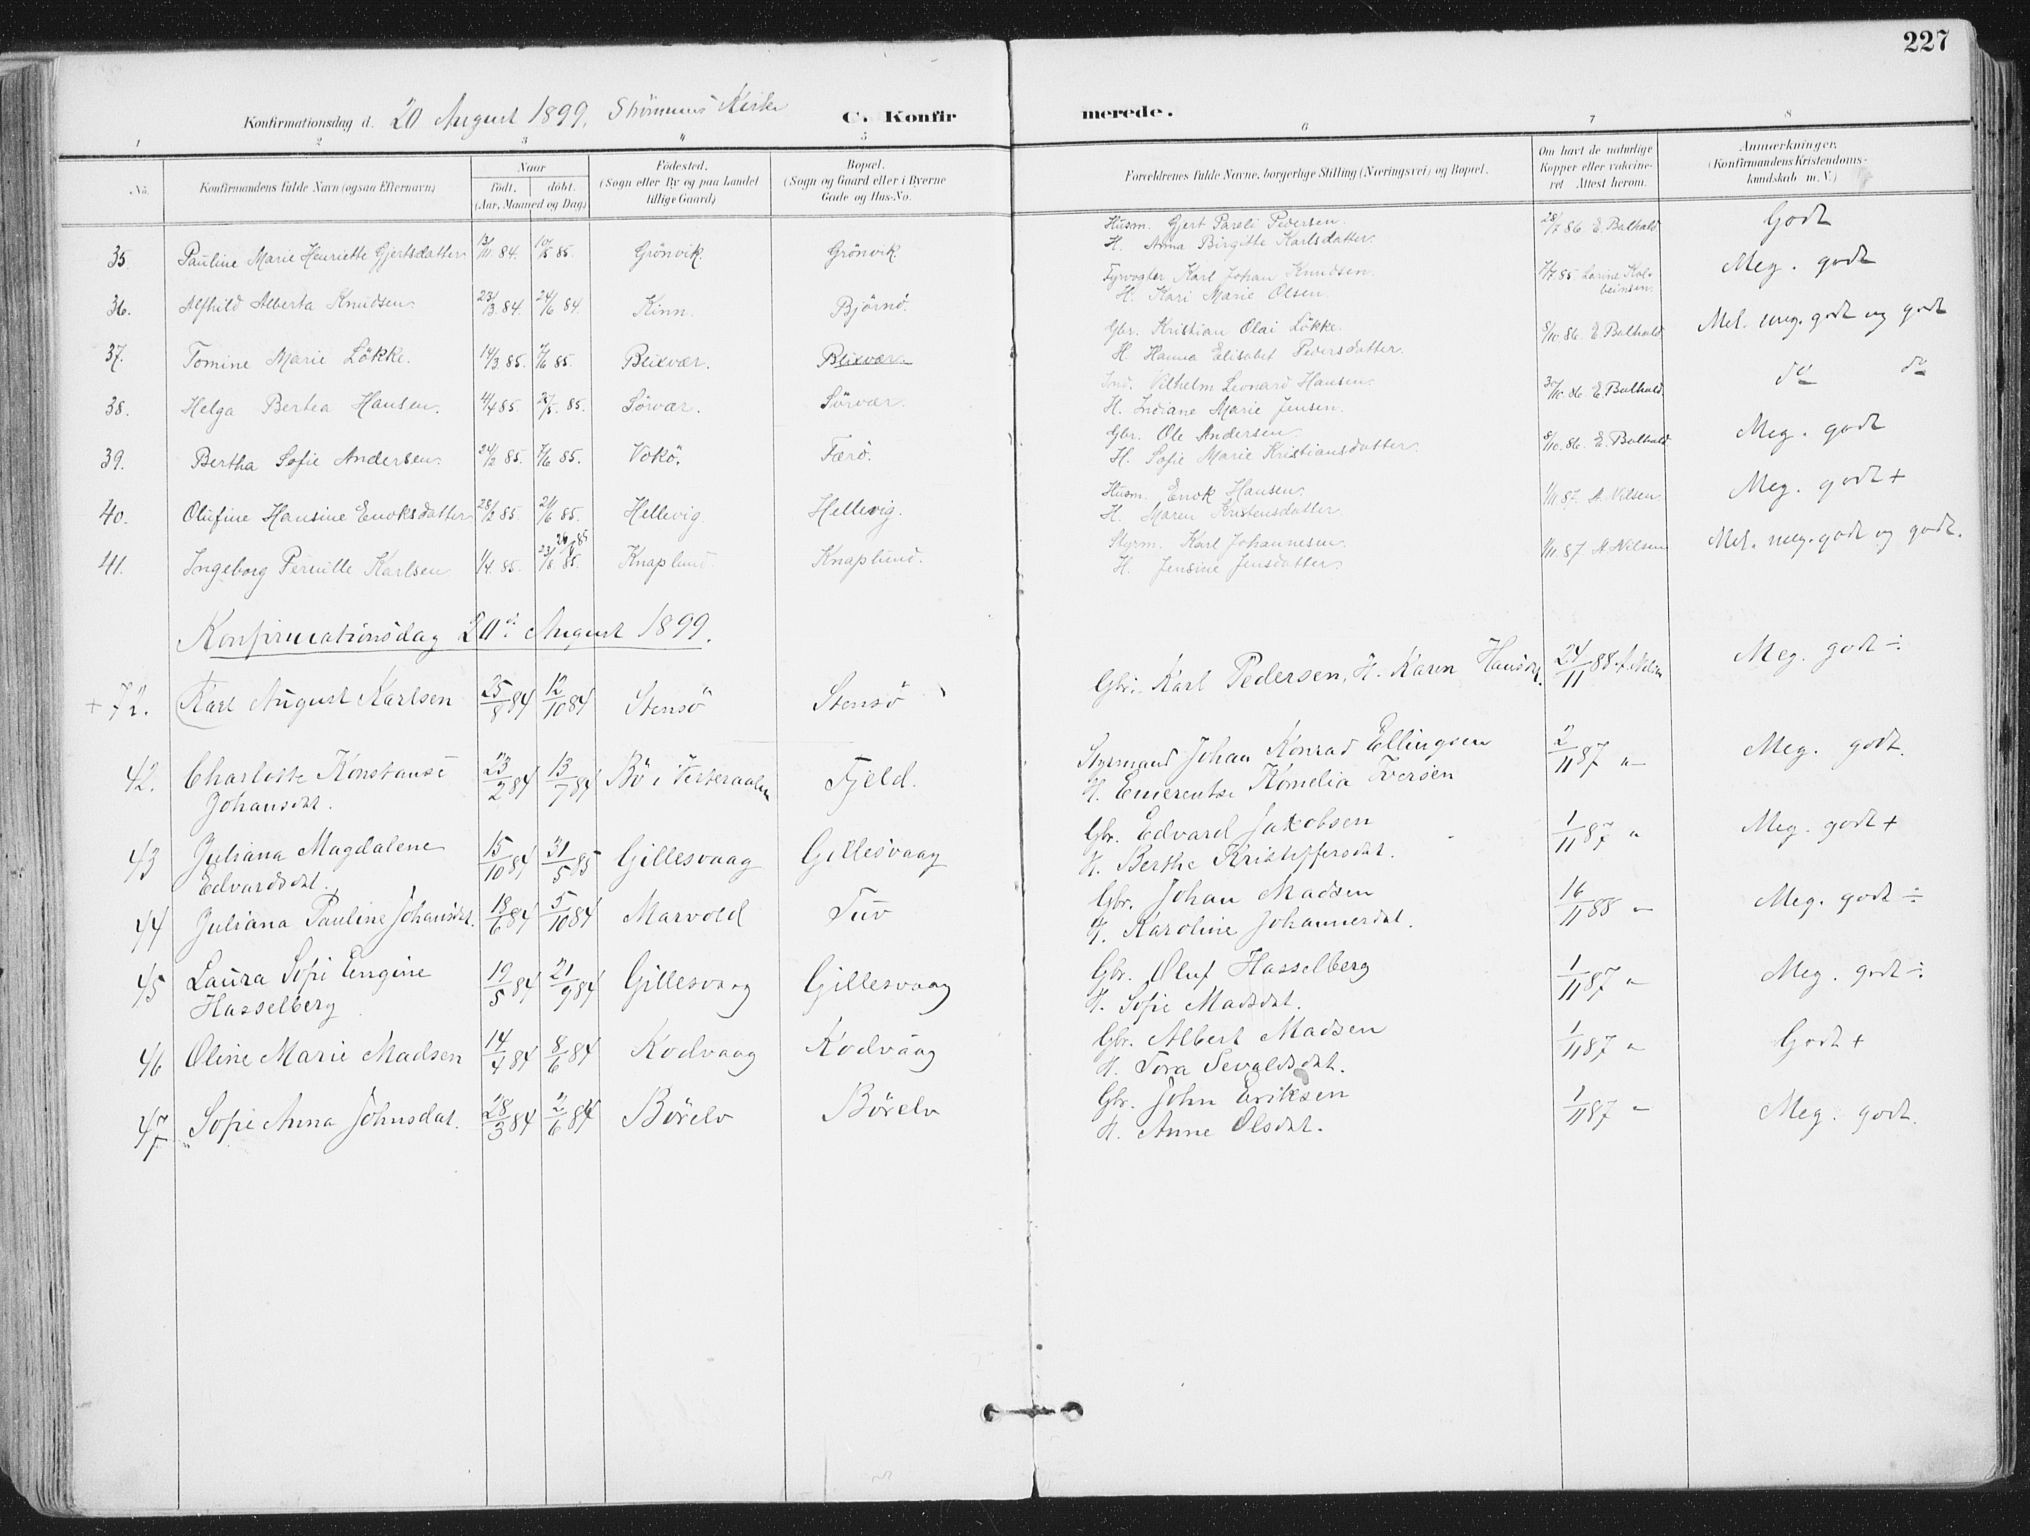 227
Konfirmationsdag d. 20 August 1899, Strømmens Kirke C. Konfirmerede.
1 2 3 4 5 6 7 8
No. Konfirmandens fulde Navn (ogsaa Efternavn) Naar født, døbt. (Aar, Maaned og Dag) Fødested. (Sogn eller By og paa Landet tillige Gaard) Bopæl. (Sogn og Gaard eller i Byerne Gade og Hus-No. Forældrenes fulde Navne, borgerlige Stilling (Næringsvei) og Bopæl. Om havt de naturlige Kopper eller vaccineret. Attest herom. Anmærkninger. (Konfirmandens Kristendomskundskab m. V.)
35. Pauline Marie Henriette Gjertsdatter 13/11 84. 10/5 85. Grönvik. Grönvik. Husm. Gjert Pareli Pedersen. 28/7 86 E. Balhald Godt
H. Anna Birgitte Karlsdatter.
36. Alfhild Alberta Knudsen. 23/3 84. 24/6 84. Kinn. Bjørnö. Fyrvogter Karl Johan Knudsen. 7/7 85 Meg. godt
H. Kari Marie Olsen.
37. Tomine Marie Lökke. 14/3 85. 7/6 85. Blixvær. Blixvær. Gbr. Kristian Olai Lökke. 8/10 86 E. Balhald Mel. meg. godt og godt
H. Hanna Elisabet Pedersdatter.
38. Helga Bertea Hansen. 4/4 85. 27/5 85. Sörvær. Sörvær. Ind. Vilhelm Leonard Hansen. 30/10 86 E. Balhald do do
H. Indiane Marie Jensen.
39. Bertha Sofie Andersen. 24/2 85. 7/6 85. Vokö. Færö. Gbr. Ole Andersen 8/10. 86. E. Balhald Meg. godt
H. Sofie Marie Kristiansdatter.
40. Olufine Hansine Enoksdatter 28/2 85. 21/6 85. Hellevig. Hellevig. Husm. Enok Hansen. 1/11 87 A. Nilsen. Meg. godt +
H. Maren Kristensdatter
41. Ingeborg Pernille Karlsen 1/4. 85. 23/8 85. Knaplund. Knaplund. Styrm. Karl Johannesen. 1/11 87 A. Nilsen Mel. meg. godt og godt.
H. Jensine Jensdatter.
Konfirmationsdag 20de August 1899.
+ 72. Karl August Karlsen 25/8 84 12/10 84 Stensö Stensö Gbr. Karl Pedersen, H. Karen Hansdt. 24/11 88 A. Nilsen Meg. godt ÷
42. Charlotte Konstanse 23/2 84 13/7 84 Bö i Vesteraalen Fjeld. Styrmand Johan Konrad Ellingsen 2/11 87 " Meg. godt.
Johansdt. H. Emerentse Kornelia Iversen
43 Juliana Magdalene 15/10 84 31/5 85 Gillesvaag Gillesvaag Gbr. Edvard Jakobsen 1/11 87 " Meg. godt +
Edvardsdt. H. Berthe Kristoffersdt.
44 Juliana Pauline Johansdt. 18/6 84 5/10 84 Marvold Tuv Gbr. Johan Madsen 16/11 88 " Meg. godt ÷
H. Karoline Johannesdt.
45 Laura Sofie Engine 19/5 84 21/9 84 Gillesvaag Gillesvaag Gbr. Oluf Hasselberg 1/11 87 " Meg. godt ÷
Hasselberg H. Sofie Madsdt.
46 Oline Marie Madsen 14/4 84 8/6 84 Kodvaag Kodvaag Gbr. Albert Madsen 1/11 87 " Godt +
H. Tora Sevaldsdt.
47 Sofie Anna Johnsdat. 28/3 84 2/6 84 Börelv Börelv Gbr. John Eriksen 1/11 87 " Meg. godt.
H. Anne Olsdt.